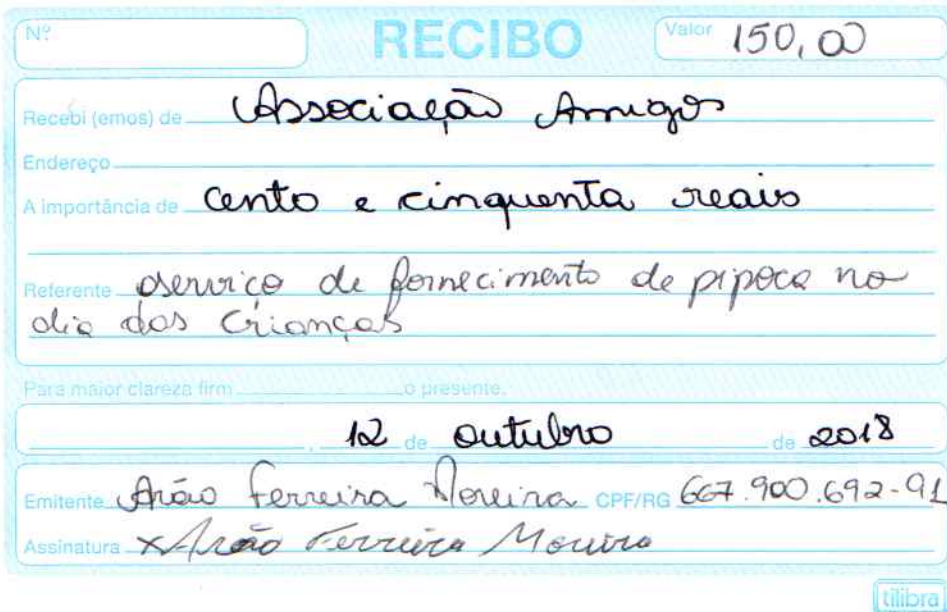 Nº
RECIBO
Valor 150,00
Recebi (emos) de Associação Amigos
Endereço
A importância de cento e cinquenta reais
Referente serviço de fornecimento de pipoca no
dia das crianças
Para maior clareza firm o presente.
, 12 de outubro de 2018
Emitente Arão Ferreira Moreira CPF/RG 667.900.692-91
Assinatura x Arão Ferreira Moreira
tilibra